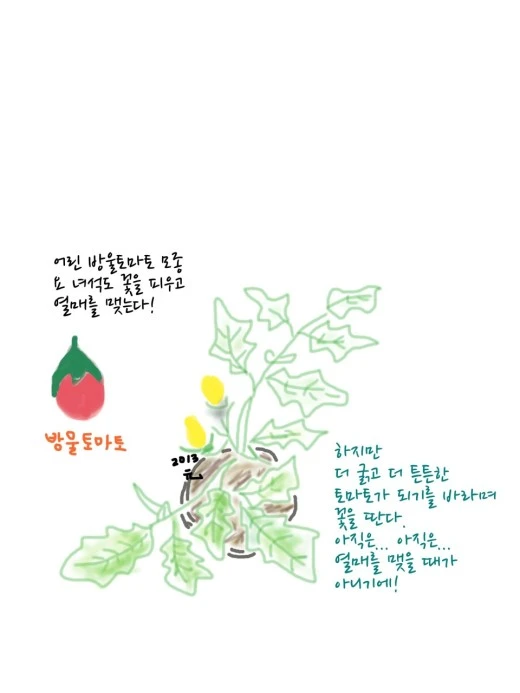 어린 방울토마토 모종
요 녀석도 꽃을 피우고
열매를 맺는다!
방울토마토
2013
하지만
더 굵고 더 튼튼한
토마토가 되기를 바라며
꽃을 딴다.
아직은... 아직은...
열매를 맺을 때가
아니기에!